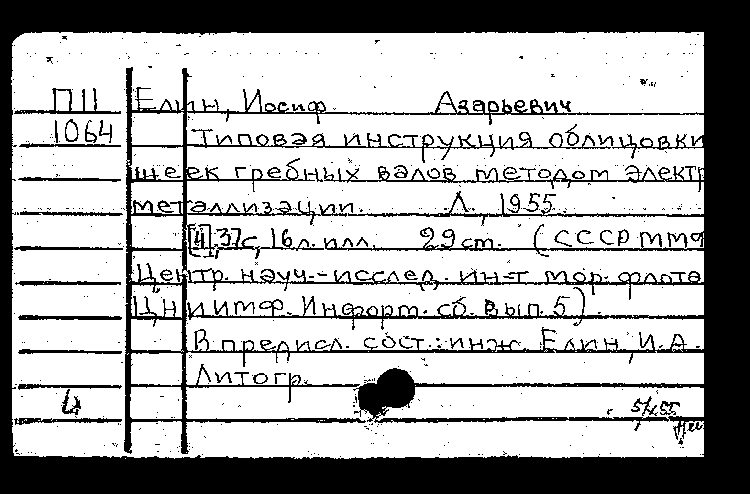 П11 Елин, Иосиф Азарьевич
1064 Типовая инструкция облицовки
шеек гребных валов методом электр
металлизации. Л., 1955.
[4], 37с, 16 л. илл. 29 ст. (СССР ММФ
Центр. науч.-исслед. ин-т мор. флота
ЦНИИМФ. Информ. сб. вып. 5).
В предисл. сост.: инж. Елин, И.А.
Литогр.
4